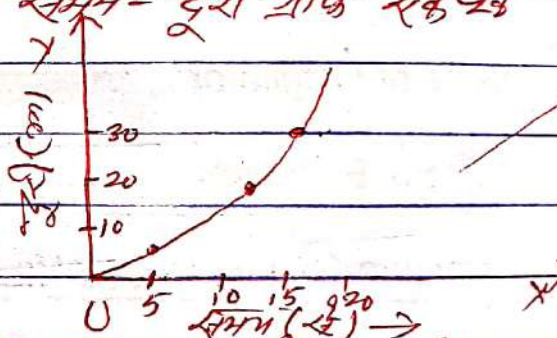 समय - दूरी ग्राफ
Y
दूरी (cm)
30
20
10
0 5 10 15 20 X
समय (से) →